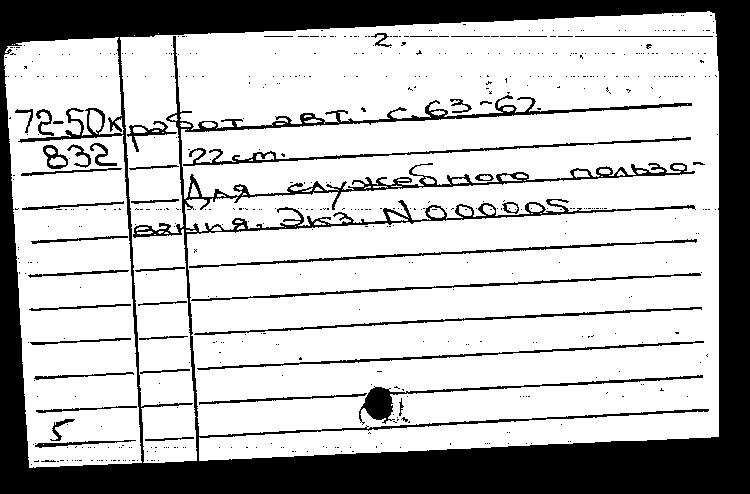 2.
72-50к работ авт.: с.63-67.
832 22 см.
Для служебного пользо-
вания. Экз. N 000005
5